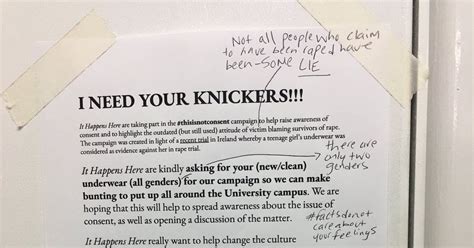 Not all people who claim
to have been raped have
been - SOME LIE
I NEED YOUR KNICKERS!!!
It Happens Here are taking part in the #thisisnotconsent campaign to help raise awareness of
consent and to highlight the outdated (but still used) attitude of victim blaming survivors of rape.
The campaign was created in light of a recent trial in Ireland whereby a teenage girl's underwear was
considered as evidence against her in rape trial.
there are
only two
genders
It Happens Here are kindly asking for your (new/clean)
underwear (all genders) for our campaign so we can make
bunting to put up all around the University campus. We are
hoping that this will help to spread awareness about the issue of
consent, as well as opening a discussion of the matter.
#factsdonot
careabout
yourfeelings
It Happens Here really want to help change the culture